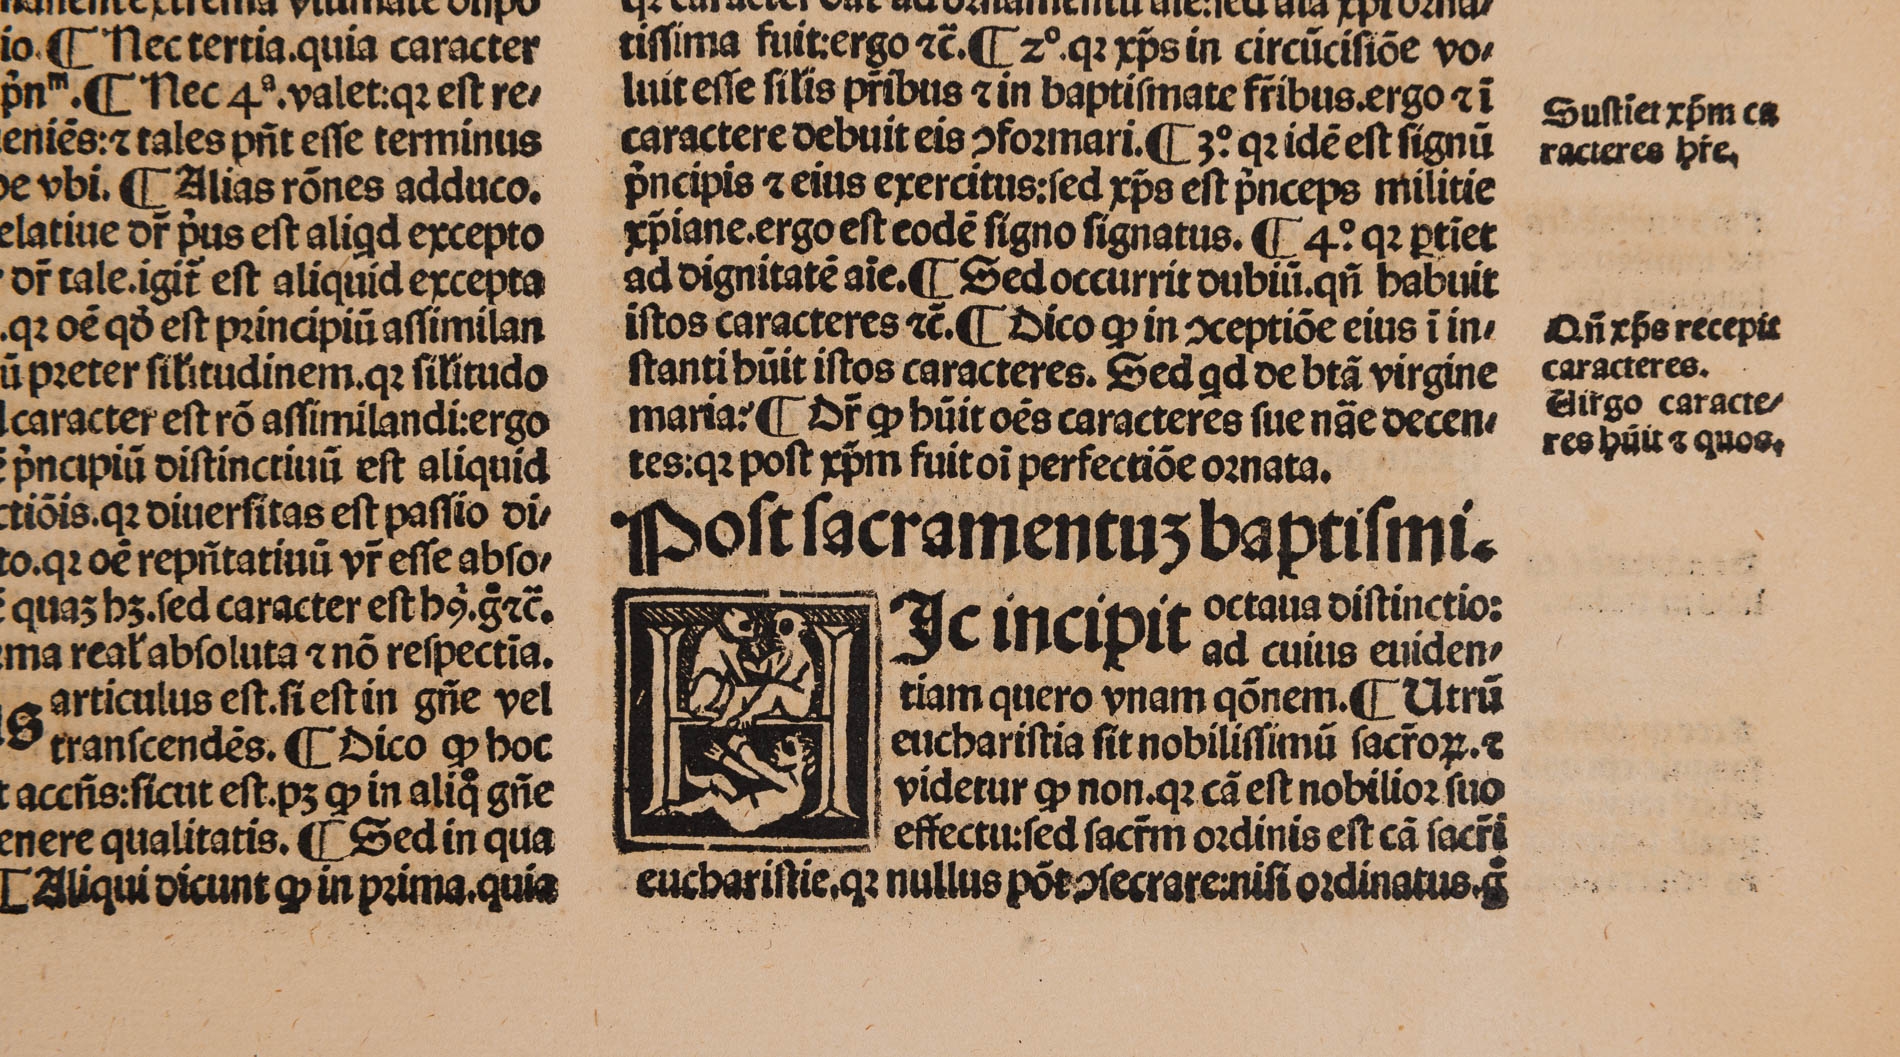 io. ¶ Nec tertia.quia caracter
p̓nᵐ. ¶ Nec 4ª.valet:qꝛ est re⸗
eniēs:⁊ tales pn̄t esse terminus
vbi. ¶ Alias rōnes adduco.
elatiue dr̄ p̓us est aliqd excepto
dr̄ tale.igit̄ est aliquid excepta
.qꝛ oē qđ est principiū assimilan
ū preter silitudinem.qꝛ silitudo
caracter est rō assimilandi:ergo
p̓ncipiū distinctiuū est aliquid
ctiōis.qꝛ diuersitas est passio di⸗
to.qꝛ oē repn̄tatiuū vr̄ esse abso⸗
quaꝫ hꝫ.sed caracter est hꝰ.g̊ ⁊c̄.
ma real̓ absoluta ⁊ nō respectīa.
articulus est.si est in gn̄e vel
transcendēs. ¶ Dico ꝙ hoc
accn̄s:sicut est.pꝫ ꝙ in aliq̊ gn̄e
enere qualitatis. ¶ Sed in qua
¶ Aliqui dicunt ꝙ in prima.quia
tissima fuit:ergo ⁊c̄. ¶ 2°.qꝛ xp̄s in circūcisiōe vo⸗
luit esse silis pr̄ibus ⁊ in baptismate fr̄ibus.ergo ⁊ ī
caractere debuit eis ↄformari. ¶ 3.° qꝛ idē est signū
p̓ncipis ⁊ eius exercitus:sed xp̄s est p̓nceps militie
xp̄iane.ergo est eodē signo signatus. ¶ 4.° qꝛ ꝑtiet
ad dignitatē aīe. ¶ Sed occurrit dubiū.qn̄ habuit
istos caracteres ⁊c̄. ¶ Dico ꝙ in ↄceptiōe eius ī in⸗
stanti hūit istos caracteres. Sed qd de btā virgine
maria? ¶ Dr̄ ꝙ hūit oēs caracteres sue nāe decen⸗
tes:qꝛ post xp̄m fuit oī perfectiōe ornata.
Post sacramentuꝫ baptismi.
HIc incipit octaua distinctio:
ad cuius euiden⸗
tiam quero vnam qōnem. ¶ Utrū
eucharistia sit nobilissimū sacr̄oꝝ.⁊
videtur ꝙ non.qꝛ cā est nobilior suo
effectu:sed sacr̄m ordinis est cā sacr̄i
eucharistie.qꝛ nullus pōt ↄsecrare:nisi ordinatus.g̊
Sustiet xp̄m ca
racteres hr̄e.
Qn̄ xp̄s recepit
caracteres.
Uirgo caracte⸗
res hūit ⁊ quos.